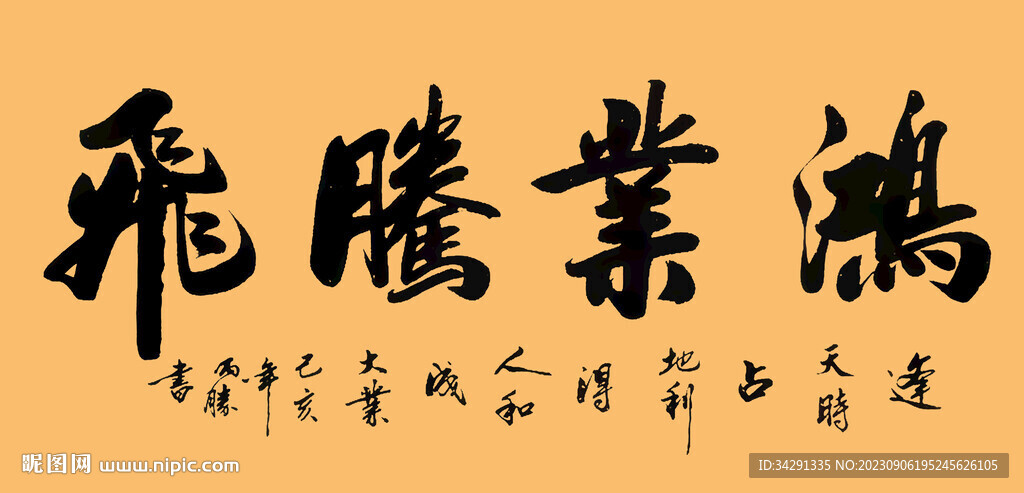 鴻業騰飛
逢天時占地利得人和成大業己亥年丙勝書
昵图网 www.nipic.com
ID:34291335 NO:20230906195245626105